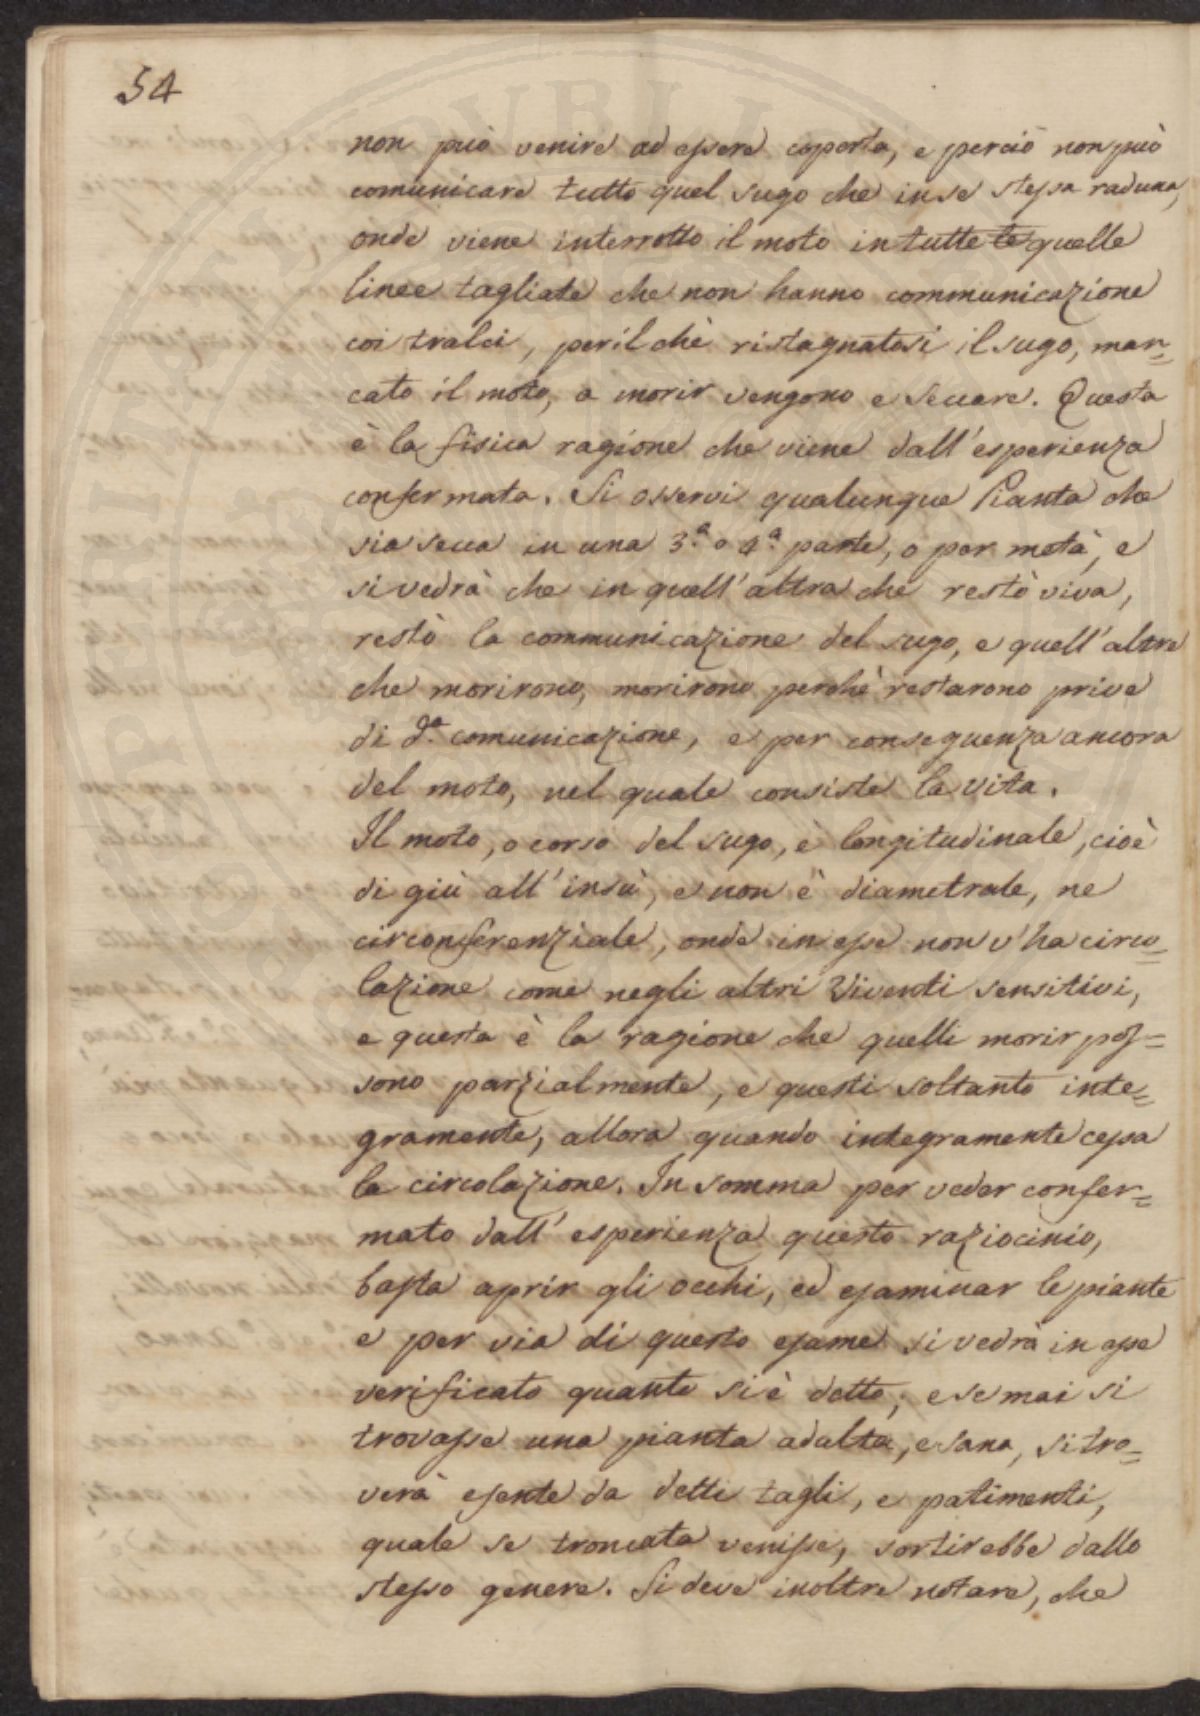 54
non può venire ad essere coperta, e perciò non può
comunicare tutto quel sugo che in se stessa raduna,
onde viene interrotto il moto in tutte le quelle
linee tagliate che non hanno communicazione
coi tralci, perilchè ristagnatosi il sugo, man=
cato il moto, a morir vengono e seccare. Questa
è la fisica ragione che viene dall'esperienza
confermata. Si osservi qualunque Pianta che
sia secca in una 3.ª o 4.ª parte, o per metà, e
si vedrà che in quell'altra che restò viva,
restò la communicazione del sugo, e quell'altre
che morirono, morirono perchè restarono prive
di d.ª comunicazione, e per conseguenza ancora
del moto, nel quale consiste la vita.
Il moto, o corso del sugo, è longitudinale, cioè
di giù all'insù, e non è diametrale, ne
circonferenziale, onde in esse non v'ha circo=
lazione come negli altri Viventi sensitivi,
e questa è la ragione che quelli morir pos=
sono parzialmente, e questi soltanto inte=
gramente, allora quando integramente cessa
la circolazione. In somma per veder confer=
mato dall'esperienza questo raziocinio,
basta aprir gli occhi, ed esaminar le piante
e per via di questo esame si vedrà in esse
verificato quanto si è detto; e se mai si
trovasse una pianta adulta, e sana, si tro=
verà esente da detti tagli, e patimenti,
quale se troncata venisse, sortirebbe dallo
stesso genere. Si deve inoltre notare, che